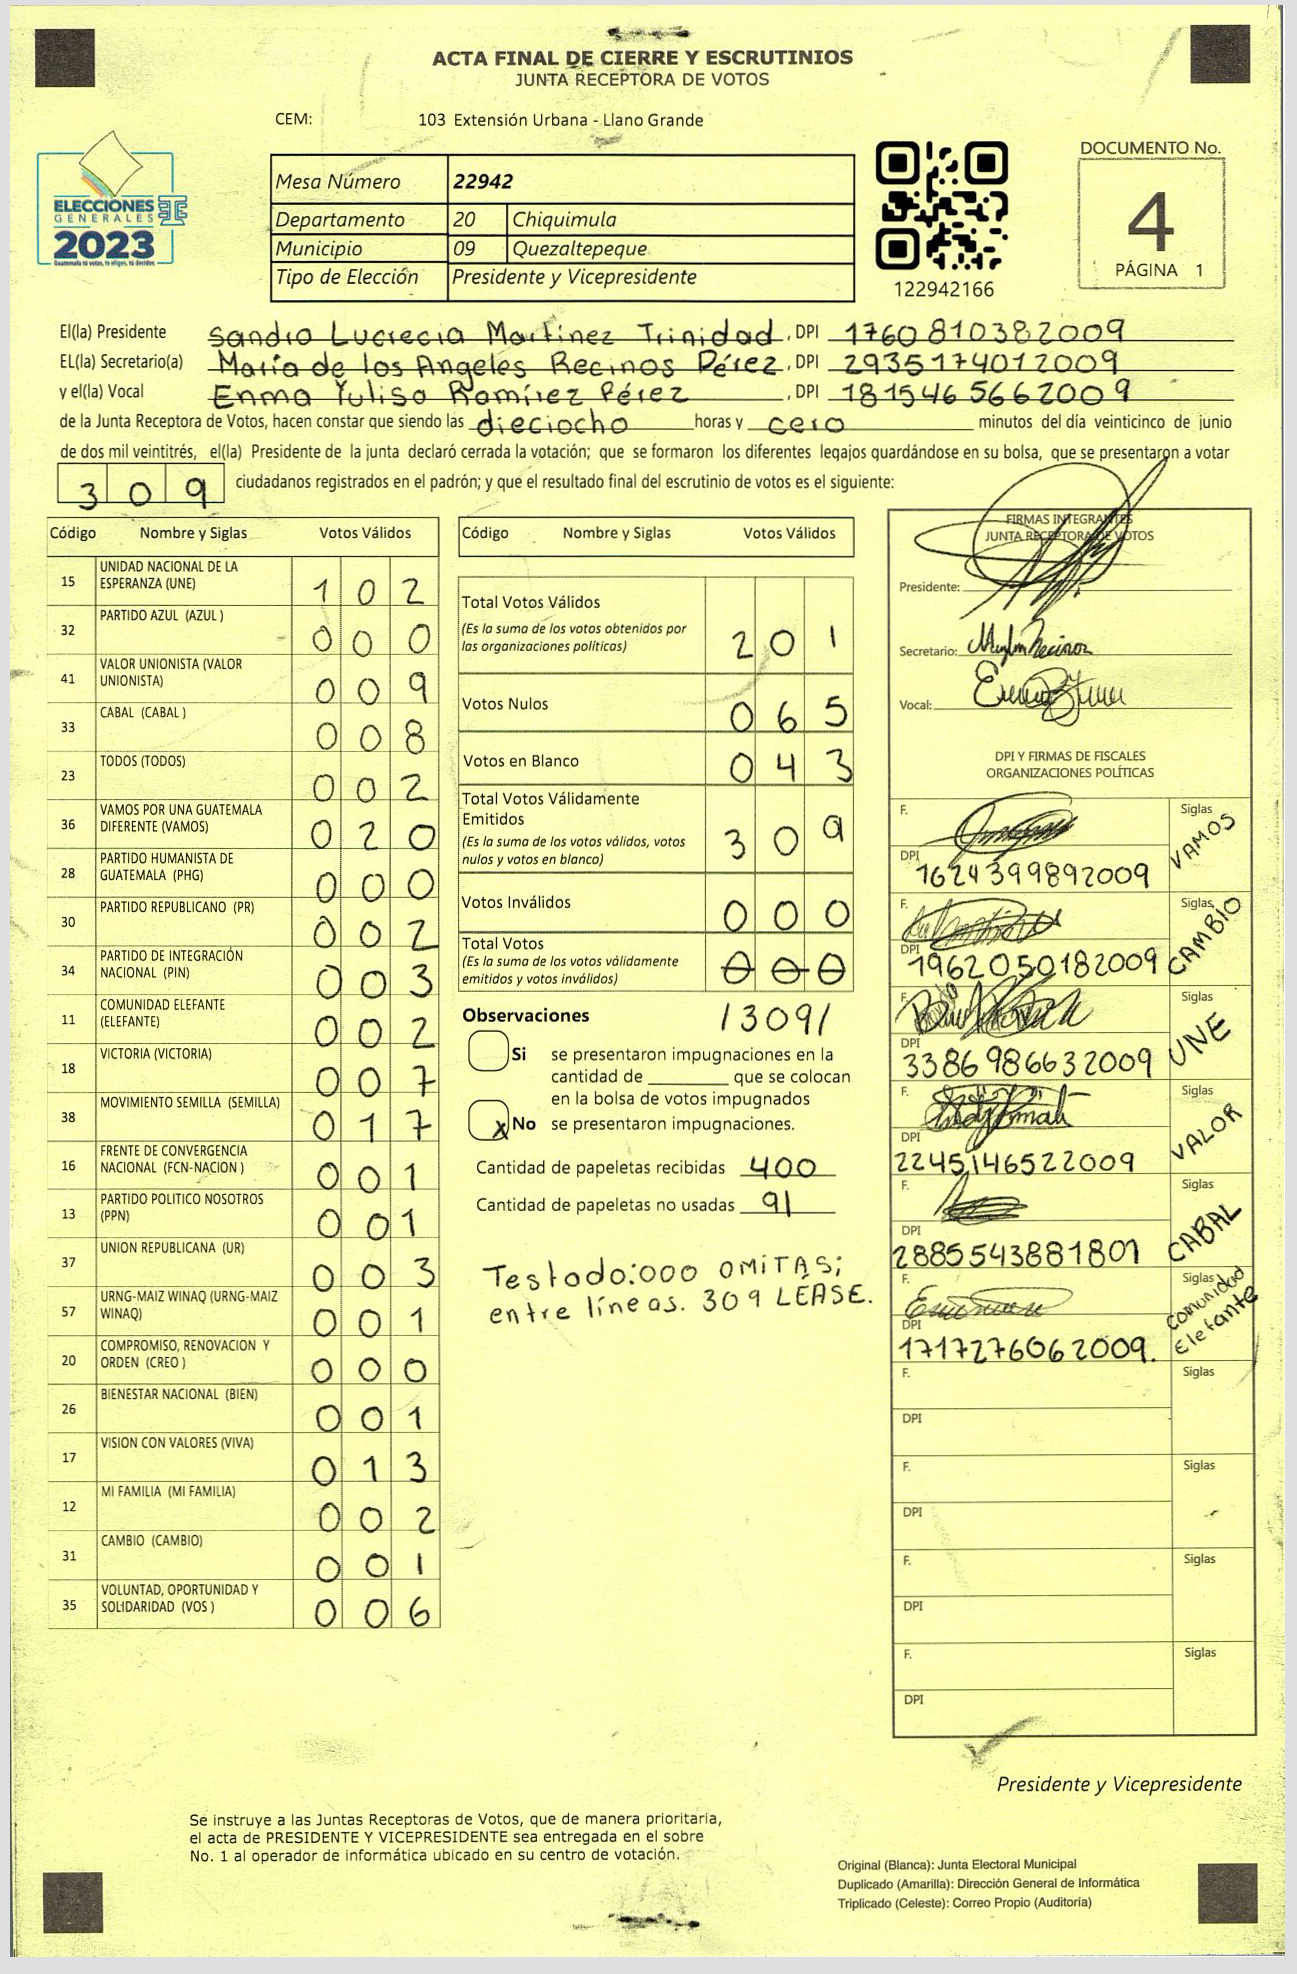 ACTA FINAL DE CIERRE Y ESCRUTINIOS
JUNTA RECEPTORA DE VOTOS
CEM: 103 Extensión Urbana - Llano Grande
ELECCIONES
GENERALES
2023
Guatemala tú votas, tú eliges, tú decides
Mesa Número 22942
Departamento 20 Chiquimula
Municipio 09 Quezaltepeque
Tipo de Elección Presidente y Vicepresidente
122942166
DOCUMENTO No.
4
PÁGINA 1
El(la) Presidente Sandra Lucrecia Martínez Trinidad, DPI 1760810382009
EL(la) Secretario(a) María de los Angeles Recinos Pérez, DPI 2935174012009
y el(la) Vocal Enma Yulisa Ramírez Pérez, DPI 1815465662009
de la Junta Receptora de Votos, hacen constar que siendo las dieciocho horas y cero minutos del día veinticinco de junio
de dos mil veintitrés, el(la) Presidente de la junta declaró cerrada la votación; que se formaron los diferentes legajos guardándose en su bolsa, que se presentaron a votar
309 ciudadanos registrados en el padrón; y que el resultado final del escrutinio de votos es el siguiente:
Código Nombre y Siglas Votos Válidos
15 UNIDAD NACIONAL DE LA
ESPERANZA (UNE) 102
32 PARTIDO AZUL (AZUL ) 000
41 VALOR UNIONISTA (VALOR
UNIONISTA) 009
33 CABAL (CABAL ) 008
23 TODOS (TODOS) 002
36 VAMOS POR UNA GUATEMALA
DIFERENTE (VAMOS) 020
28 PARTIDO HUMANISTA DE
GUATEMALA (PHG) 000
30 PARTIDO REPUBLICANO (PR) 002
34 PARTIDO DE INTEGRACIÓN
NACIONAL (PIN) 003
11 COMUNIDAD ELEFANTE
(ELEFANTE) 002
18 VICTORIA (VICTORIA) 007
38 MOVIMIENTO SEMILLA (SEMILLA) 017
16 FRENTE DE CONVERGENCIA
NACIONAL (FCN-NACION ) 001
13 PARTIDO POLITICO NOSOTROS
(PPN) 001
37 UNION REPUBLICANA (UR) 003
57 URNG-MAIZ WINAQ (URNG-MAIZ
WINAQ) 001
20 COMPROMISO, RENOVACION Y
ORDEN (CREO ) 000
26 BIENESTAR NACIONAL (BIEN) 001
17 VISION CON VALORES (VIVA) 013
12 MI FAMILIA (MI FAMILIA) 002
31 CAMBIO (CAMBIO) 001
35 VOLUNTAD, OPORTUNIDAD Y
SOLIDARIDAD (VOS ) 006
Código Nombre y Siglas Votos Válidos
Total Votos Válidos
(Es la suma de los votos obtenidos por
las organizaciones políticas) 201
Votos Nulos 065
Votos en Blanco 043
Total Votos Válidamente
Emitidos
(Es la suma de los votos válidos, votos
nulos y votos en blanco) 309
Votos Inválidos 000
Total Votos
(Es la suma de los votos válidamente
emitidos y votos inválidos) 000
Observaciones /309/
Si se presentaron impugnaciones en la
cantidad de ________ que se colocan
en la bolsa de votos impugnados
x No se presentaron impugnaciones.
Cantidad de papeletas recibidas 400
Cantidad de papeletas no usadas 91
Testado:000 OMITAS;
entre líneas. 309 LÉASE.
FIRMAS INTEGRANTES
JUNTA RECEPTORA DE VOTOS
Presidente:
Secretario:
Vocal:
DPI Y FIRMAS DE FISCALES
ORGANIZACIONES POLÍTICAS
F. Siglas VAMOS
DPI 1624399892009
F. Siglas CAMBIO
DPI 1962050182009
F. Siglas UNE
DPI 3386986632009
F. Siglas VALOR
DPI 2245146522009
F. Siglas CABAL
DPI 2885543881801
F. Siglas Comunidad Elefante
DPI 1717276062009.
F. Siglas
DPI
F. Siglas
DPI
F. Siglas
DPI
F. Siglas
DPI
Presidente y Vicepresidente
Se instruye a las Juntas Receptoras de Votos, que de manera prioritaria,
el acta de PRESIDENTE Y VICEPRESIDENTE sea entregada en el sobre
No. 1 al operador de informática ubicado en su centro de votación.
Original (Blanca): Junta Electoral Municipal
Duplicado (Amarilla): Dirección General de Informática
Triplicado (Celeste): Correo Propio (Auditoría)